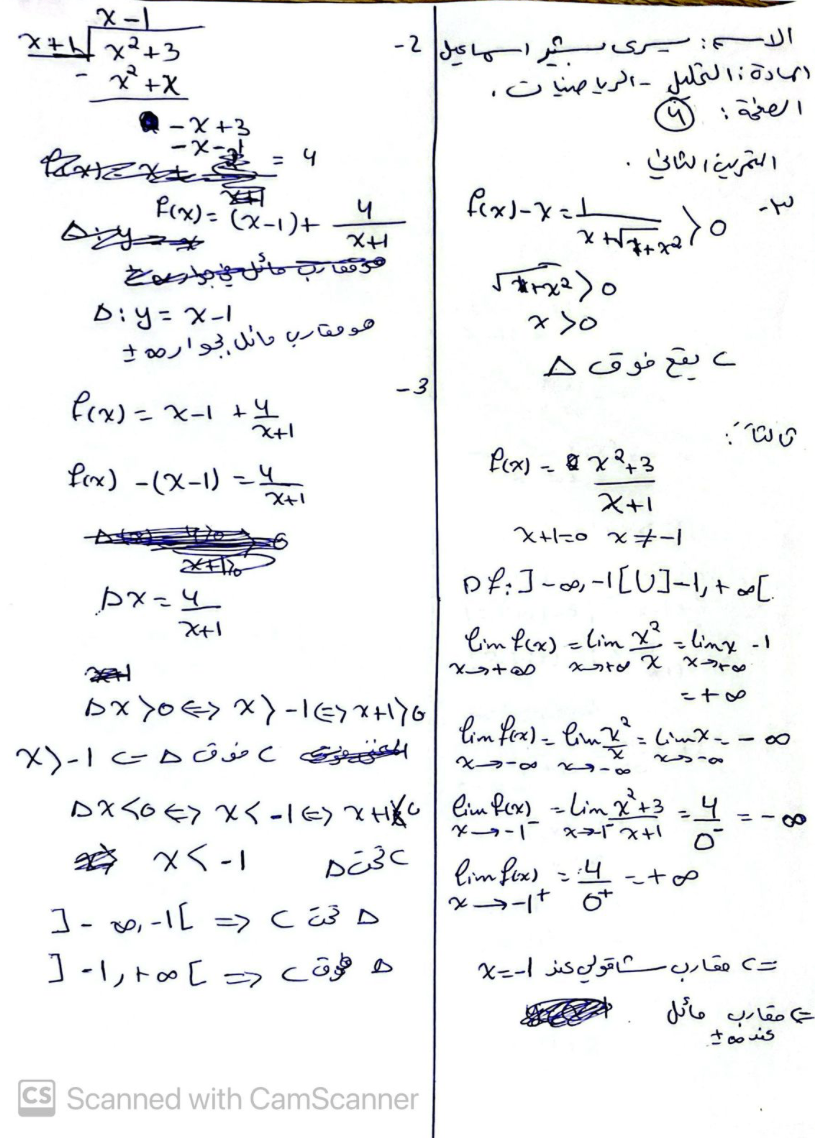 الاسم: يسرى بشير اسماعيل
المادة: التحليل - الرياضيات.
الصفحة: ④
التمرين الثاني.
٣-
f(x)-x = 1/(x+√(1+x²)) > 0
√(1+x²) > 0
x > 0
C يقع فوق Δ
ثالثاً:
f(x) = (x²+3)/(x+1)
x+1=0 x≠-1
Df: ]-∞,-1[U]-1,+∞[
lim f(x) = lim x²/x = lim x -1
x→+∞ x→+∞ x→+∞
= +∞
lim f(x) = lim x²/x = lim x = -∞
x→-∞ x→-∞ x→-∞
lim f(x) = lim (x²+3)/(x+1) = 4/0⁻ = -∞
x→-1⁻ x→-1⁻
lim f(x) = 4/0⁺ = +∞
x→-1⁺
=> مقارب شاقولي عند x=-1
=> مقارب مائل
عند ±∞
-2
x-1
x+1 x²+3
- x²+x
-x+3
-x-1
= 4
f(x) = (x-1)+ 4/(x+1)
Δ: y = x-1
هو مقارب مائل بجوار ±∞
-3
f(x) = x-1 + 4/(x+1)
f(x) -(x-1) = 4/(x+1)
Δx = 4/(x+1)
Δx>0 <=> x>-1 <=> x+1>0
C فوق Δ <= x>-1
Δx<0 <=> x<-1 <=> x+1<0
x<-1 C تحت Δ
]-∞,-1[ => C تحت Δ
]-1,+∞[ => C فوق Δ
CS Scanned with CamScanner